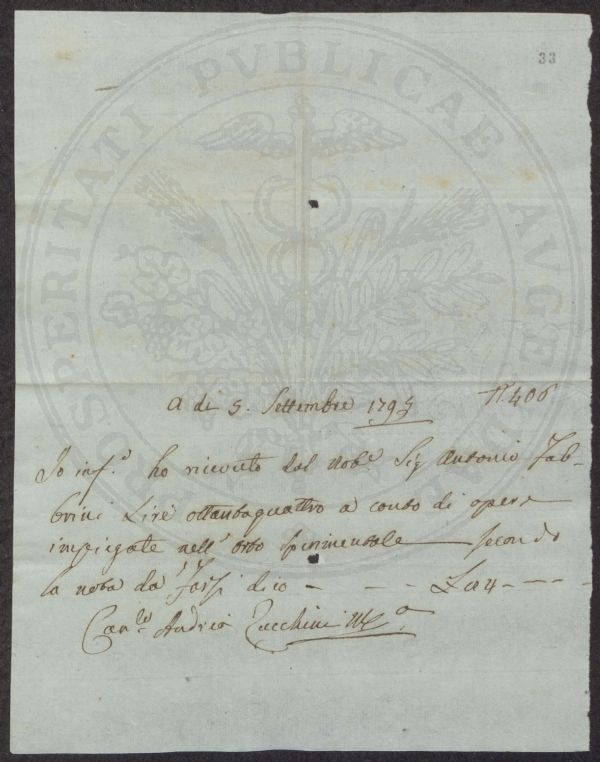 33
PROSPERITATI PVBLICAE AVGENDAE
A di 5. Settembre 1795
N. 406
Io inf.o ho ricevuto dal Nob.e Sig Antonio Fab-
brini Lire ottantaquattro a conto di opere
impiegate nell' orto sperimentale secondo
la nota da farsi dico - - - - L 84 - - - -
Can.co Andrea Zucchini